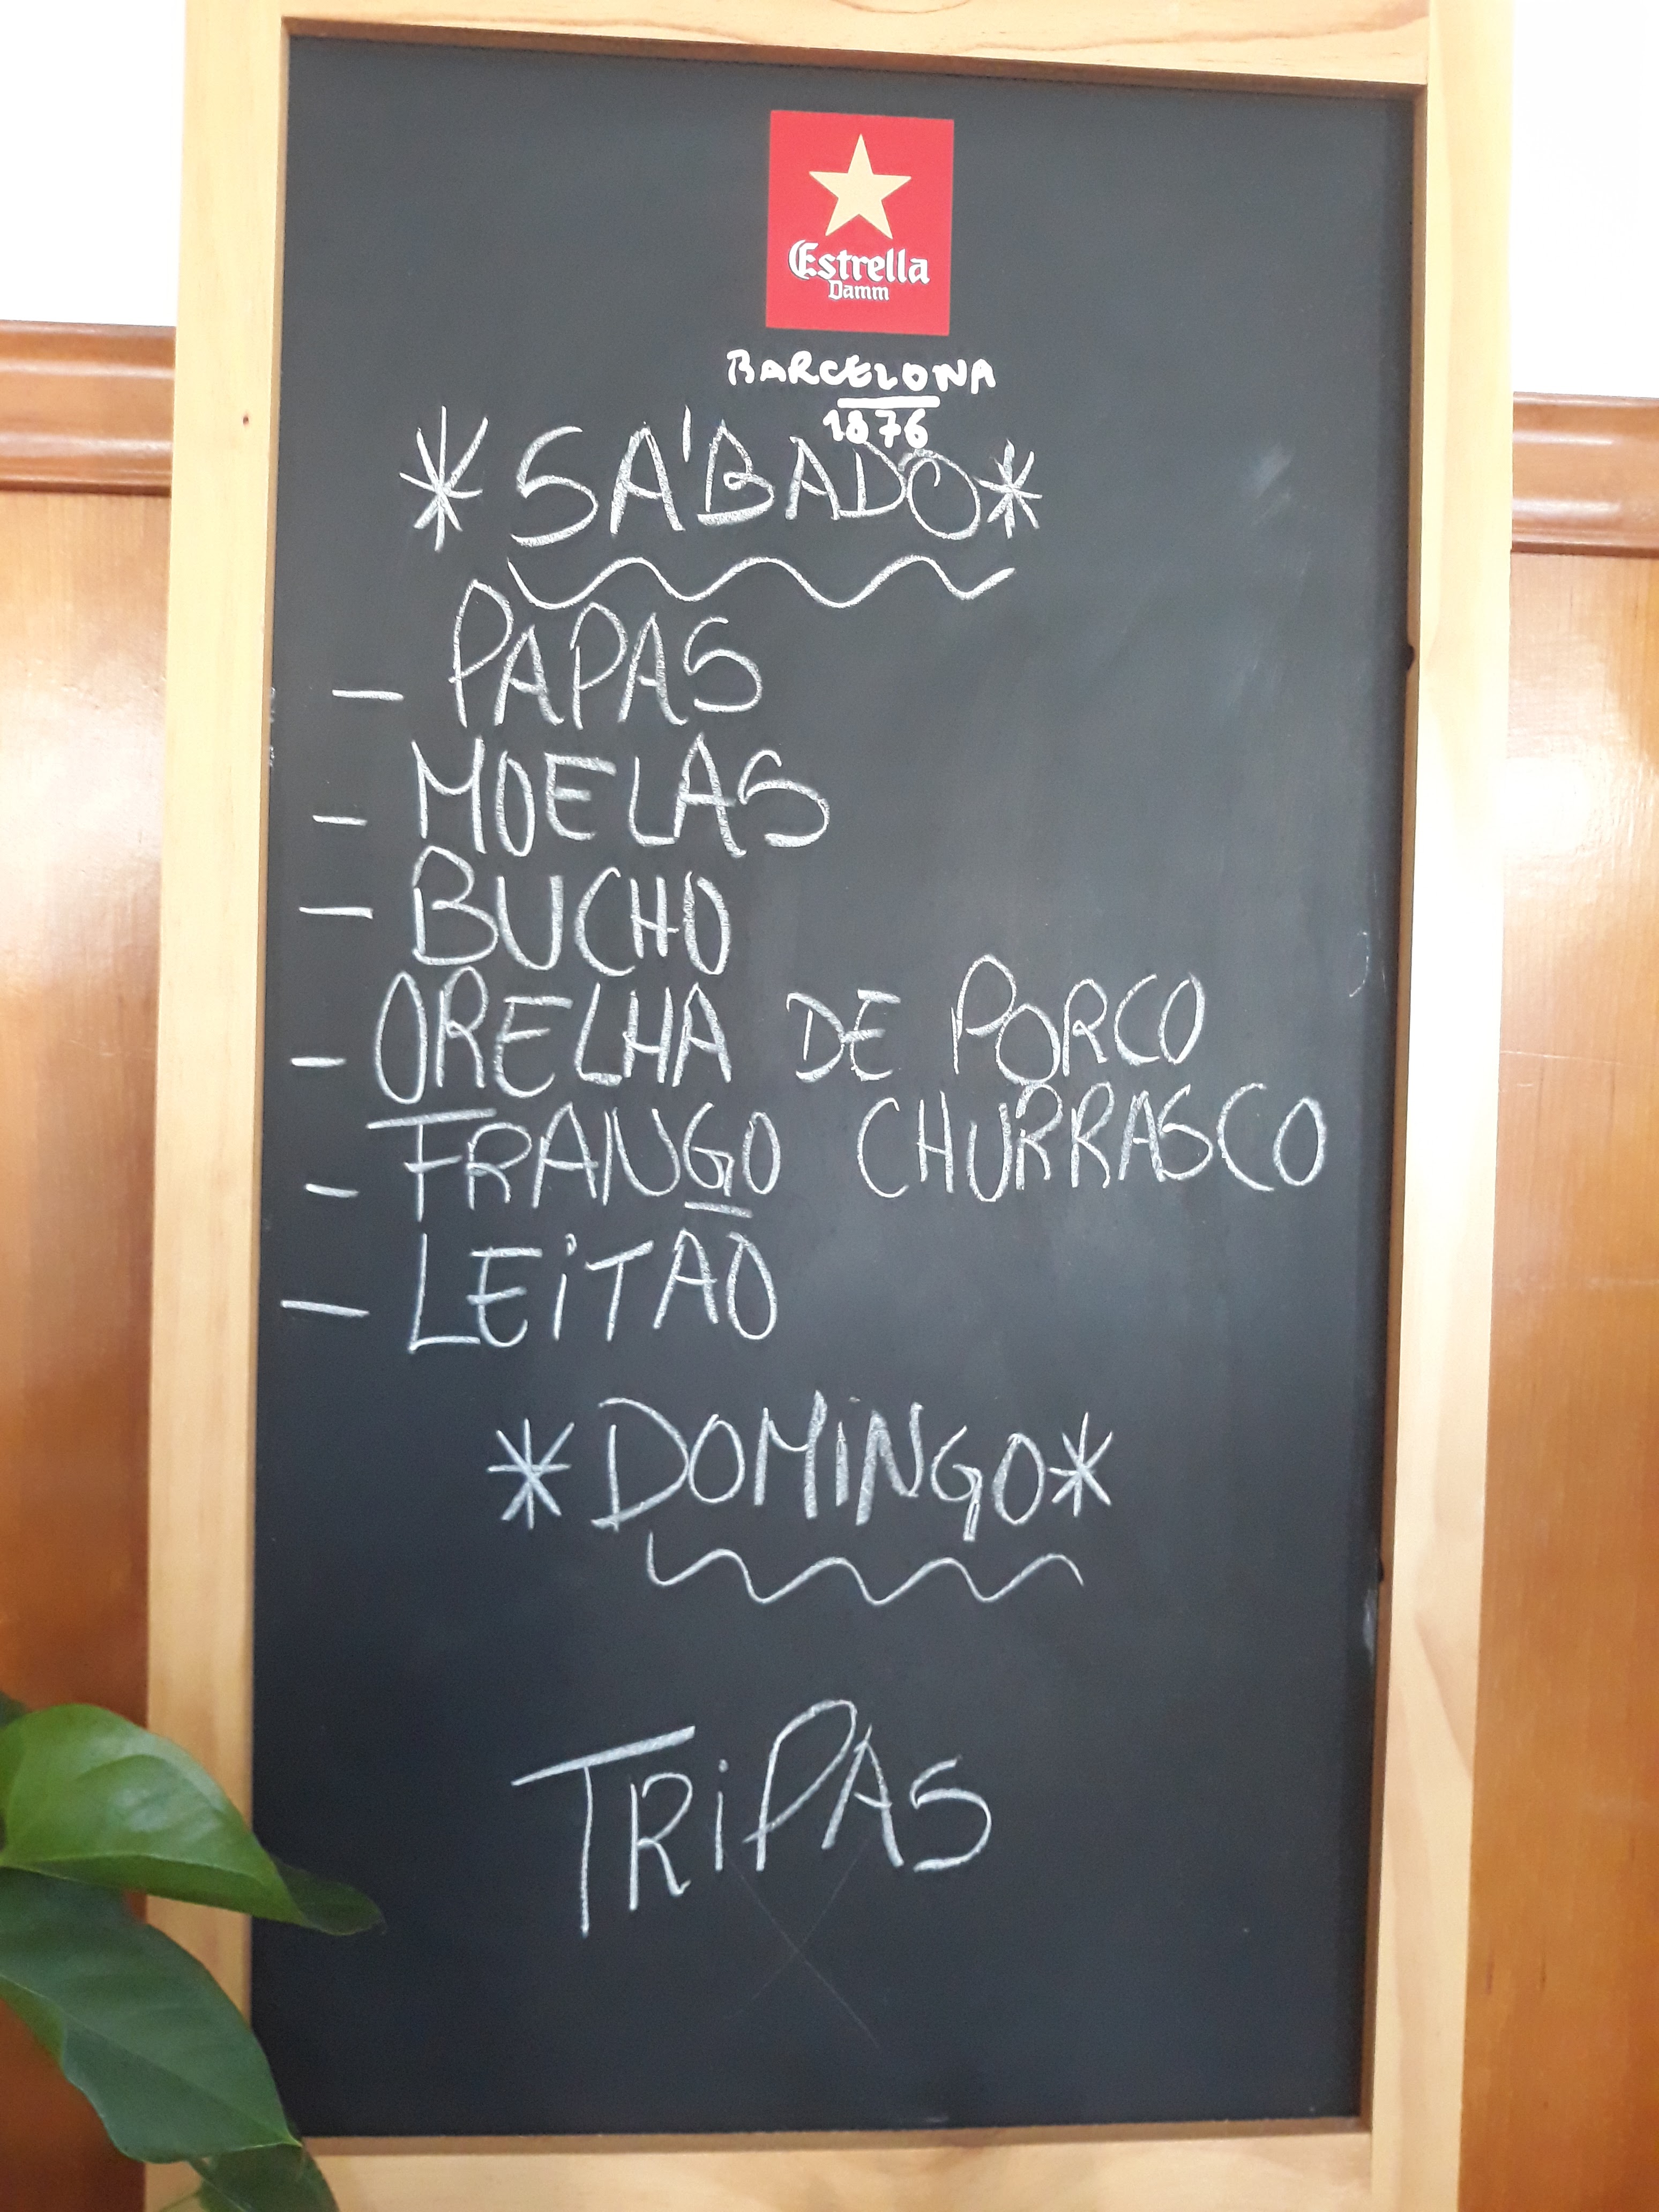 Estrella
Damm
BARCELONA
1876
* SÁBADO *
— PAPAS
— MOELAS
— BUCHO
— ORELHA DE PORCO
— FRANGO CHURRASCO
— LEiTÃO
* DOMiNGO *
TRiPAS